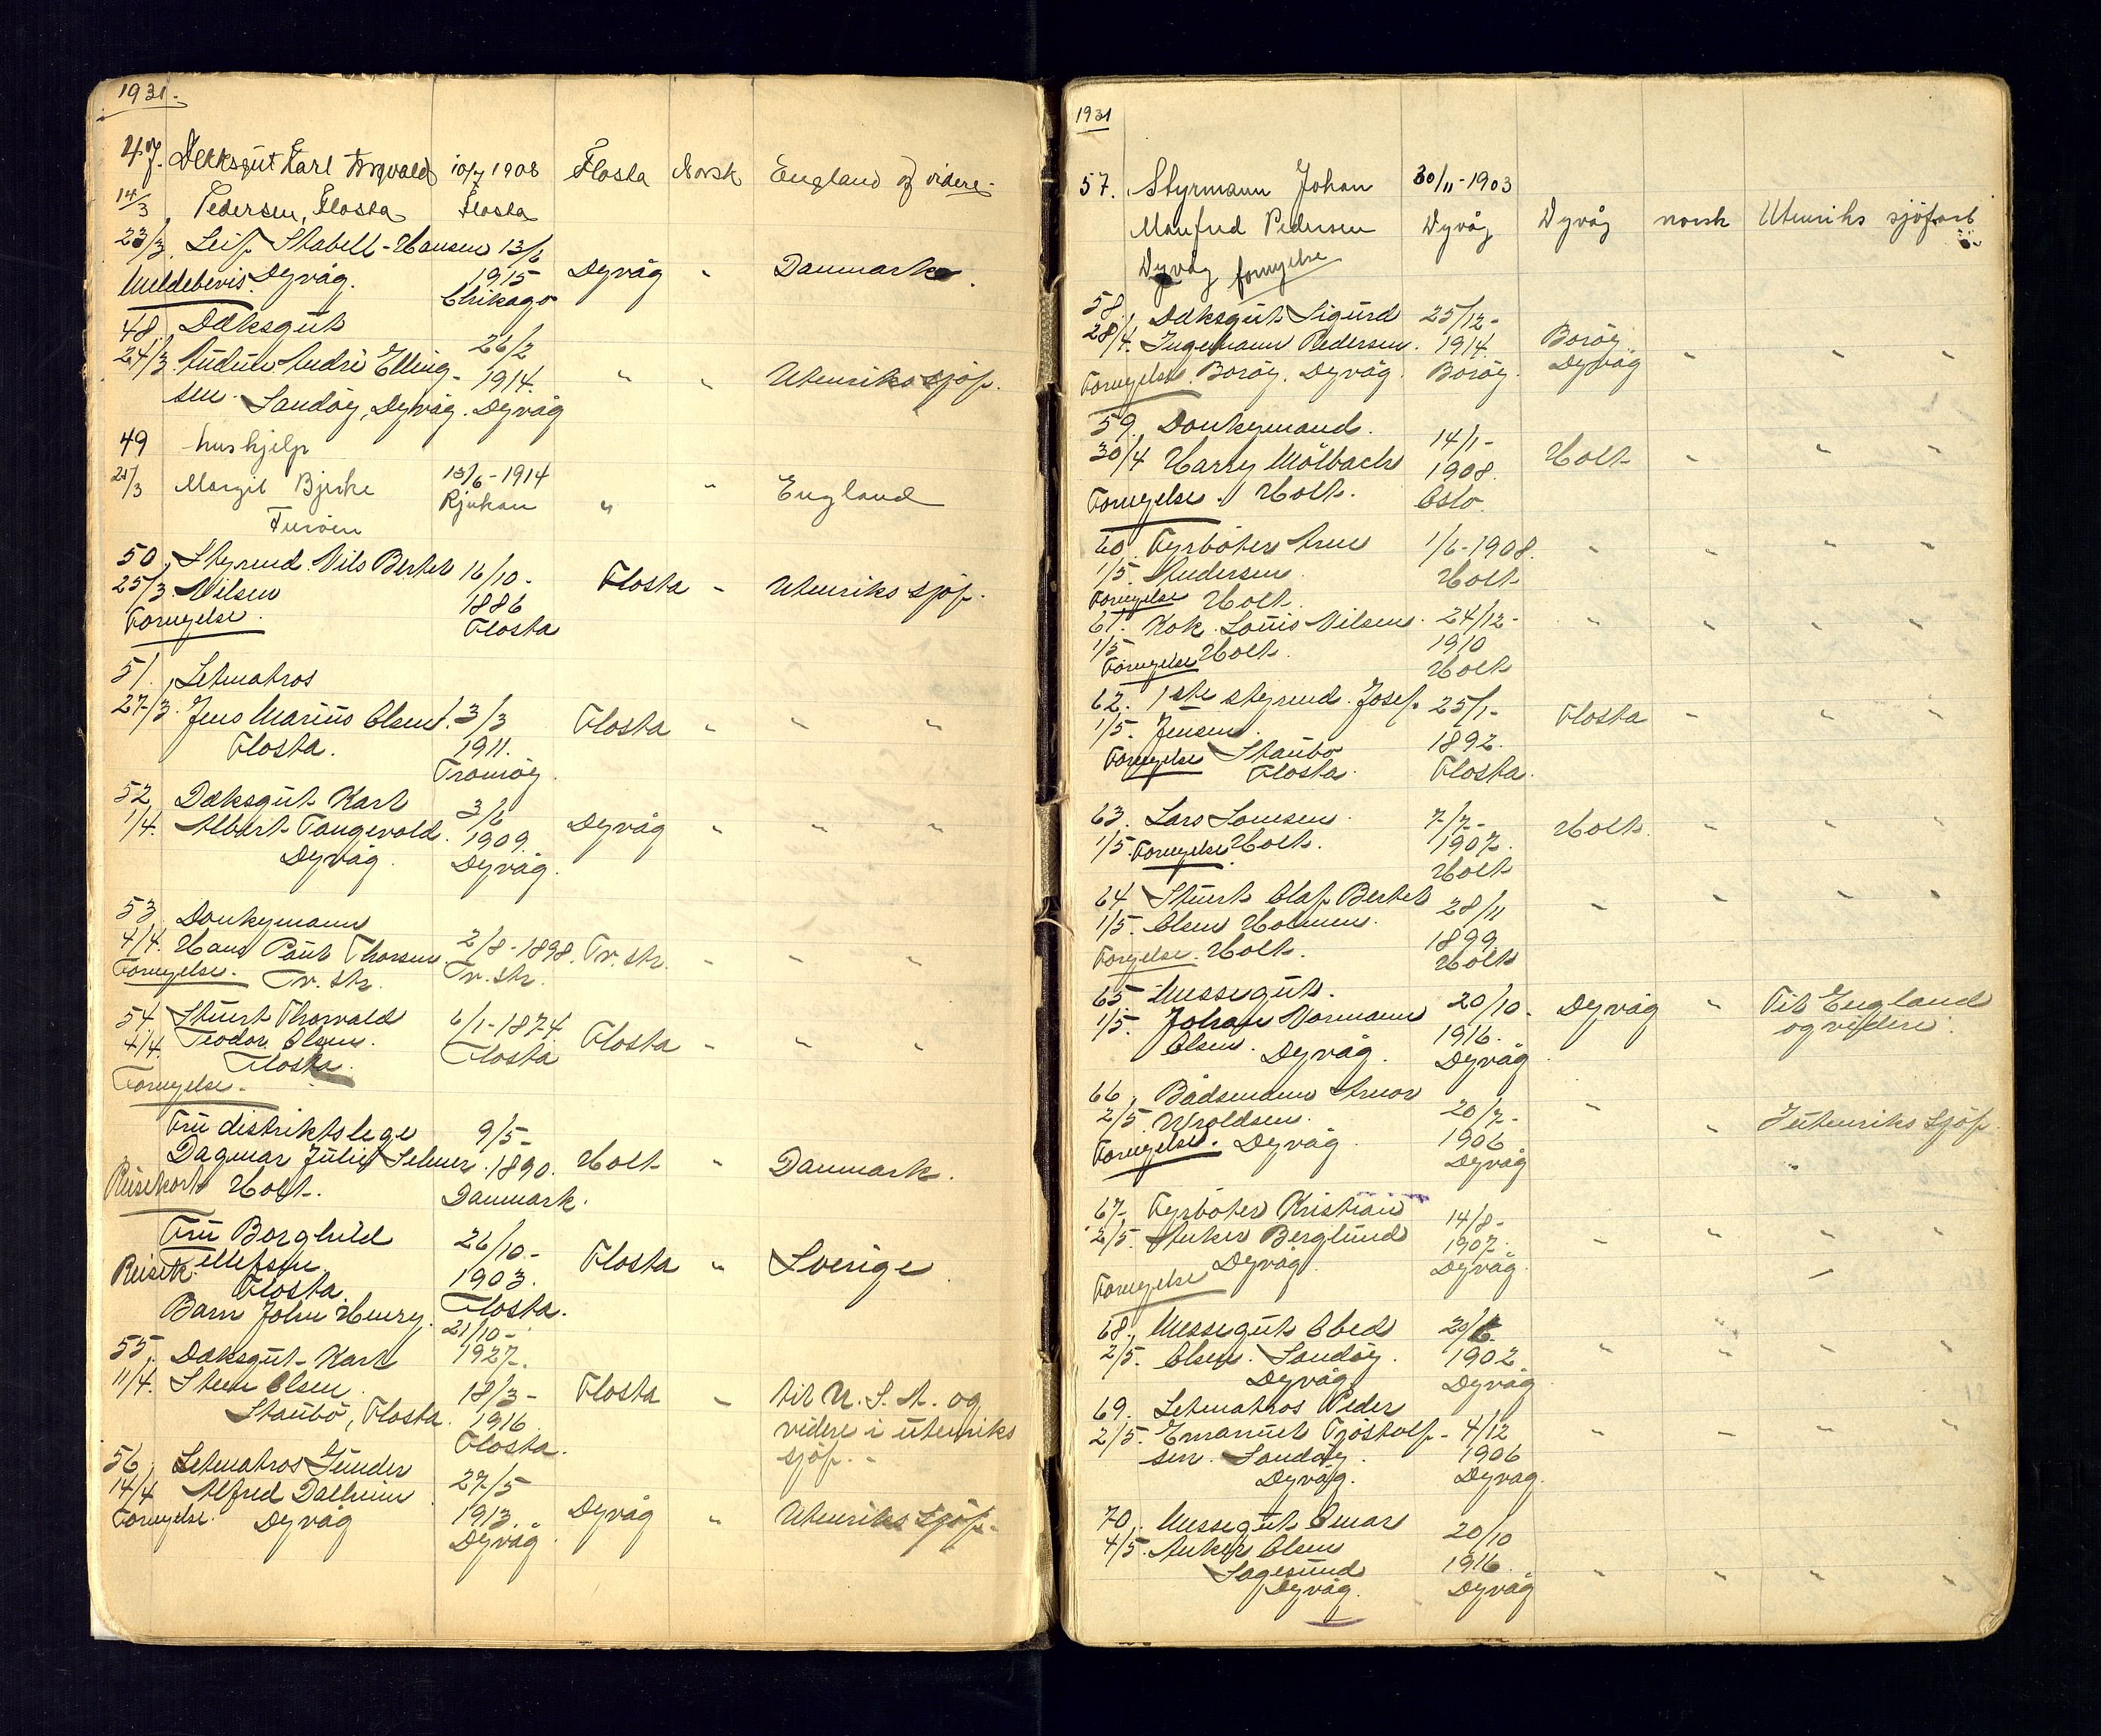 1931.
47. Dekksgut Karl Torvald 10/7 1908 Flosta Norsk England og videre.
14/3 Pedersen, Flosta Flosta
23/3. Leif Stabell-Hansen 13/6
Meldebevis. Dyvåg. 1915 Dyvåg " Danmark.
Chikago
48. Dæksgut
24/3 Audun Andre Elling- 26/2 1914. " " Utenriks sjøf.
sen. Sandøy, Dyvåg. Dyvåg
49 hushjelp
25/3 Margit Bjerke 13/6-1914 " " England
Furöen Rjukan
50. Styrmd. Nils Bertel 16/10-
25/3. Nilsen 1886 Flosta - Utenriks sjøf.
Fornyelse. Flosta
51. Letmatros
27/3. Jens Marius Olsen. 3/3 Flosta " " "
Flosta. 1911.
Tromøy.
52. Dæksgut Karl 3/6
1/4. Albert Tangevald. 1909. Dyvåg " " "
Dyvåg. Dyvåg.
53. Donkymann
4/4. Hans Paul Thorsen. 2/8-1898. Tv. str. " " "
Fornyelse. Tv. str. Tv. str.
54. Stuert Thorvald 6/1-1874 Flosta " " "
4/4. Teodor Olsen. Flosta
Flosta.
Fornyelse.
Fru distriktslege 9/5-
Dagmar Julie Selmer. 1890. Holt " Danmark.
Reisekort Holt. Danmark.
Fru Borghild 26/10-
Ellefsen. 1903. Flosta " Sverige
Reisek. Flosta. Flosta.
Barn John Henry. 21/10-
1927.
55. Dæksgut Karl
11/4. Steen Olsen 18/3- Flosta " til U.S.A. og
Staubö, Flosta. 1916 videre i utenriks
Flosta. sjöf.
56. Letmatros Gunder 27/5
14/4 Alfred Dalheim 1913. Dyvåg " Utenriks sjöf.
Fornyelse. Dyvåg Dyvåg.
1931
57. Styrmann Johan 30/11-1903
Manfred Pedersen Dyvåg Dyvåg norsk Utenriks sjöfart
Dyvåg fornyelse
58. Dæksgut Sigurd 25/12-
28/4. Ingemann Pedersen. 1914. Borøy. " " "
Fornyelse. Borøy. Dyvåg. Borøy. Dyvåg
59. Donkymand. 14/1-
30/4 Harry Mölbach 1908. Holt " " "
Fornyelse. Holt. Oslo.
60. Fyrböter Arne 1/6-1908. " " " "
1/5. Andersen. Holt
Fornyelse Holt.
61. Kok. Louis Nilsen. 24/12- " " " "
1/5. 1910
Fornyelse Holt. Holt
62. 1ste styrmd. Josef. 25/1- Flosta " " "
1/5. Jensen. 1892.
Fornyelse Staubo Flosta.
Flosta.
63. Lars Larsen. 7/7- Holt. " " "
1/5. Fornyelse Holt. 1907.
Holt
64 Stuert Olaf Bertel 28/11 " " " "
1/5. Olsen Holmen. 1899.
Fornyelse. Holt. Holt
65 Messegut. 20/10. Dyvåg " Til England
1/5. Johan Normann 1916. og videre.
Olsen. Dyvåg. Dyvåg.
66. Bådsmann Arnor 20/7- " " I utenriks sjöf.
2/5. Uroldsen. 1906
Fornyelse. Dyvåg. Dyvåg "
67- Fyrböter Kristian 14/8- " " " "
2/5. Anker Berglund 1907.
Dyvåg. Dyvåg.
Fornyelse
68. Messegut Obed 20/6 " " " "
2/5. Olsen. Sandøy. 1902.
Dyvåg. Dyvåg
69. Letmatros Peder
2/5. Emanuel Tjöstolf- 4/12 " " " "
sen. Sandøy. 1906
Dyvåg. Dyvåg.
70. Messegut Omar 20/10
4/5. Anker Olsen 1916. " " " "
Sagesund Dyvåg
Dyvåg.